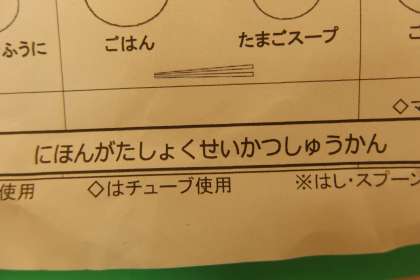 ふうに ごはん たまごスープ
にほんがたしょくせいかつしゅうかん
使用 ◇はチューブ使用 ※はし・スプーン